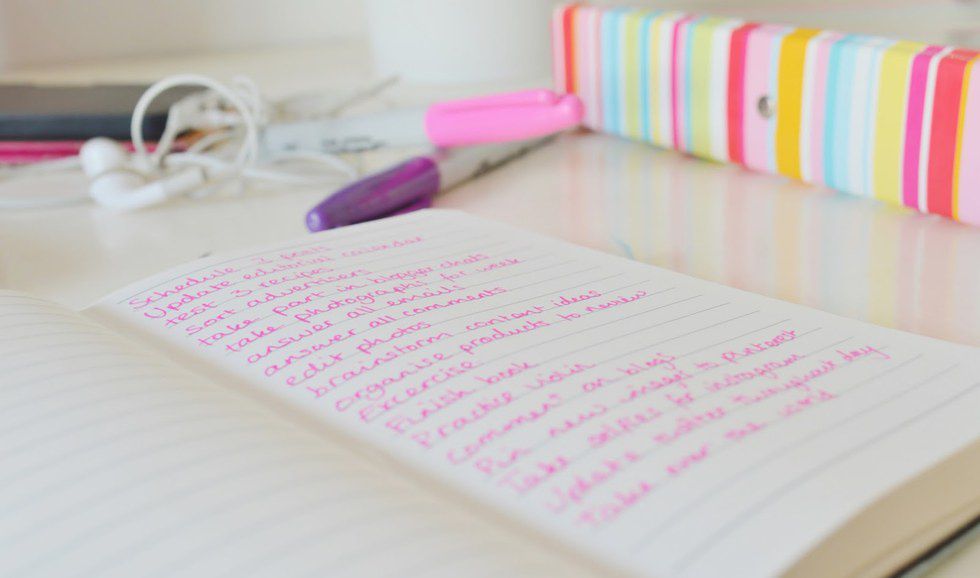 Schedule 2 posts
Update editorial calendar
test 3 recipes
Sort advertisers
take part in blogger chats
take photographs for week
answer all emails
answer all comments
edit photos
brainstorm content ideas
organise products to review
Excercise
Finish book
Practice violin
Comment on blogs
Pin new images to Pinterest
Take selfies for instagram
Update twitter throughout day
Take over the world